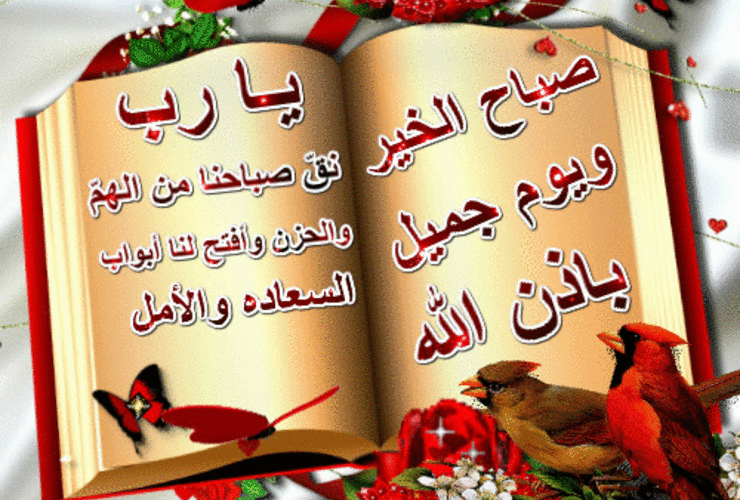 صباح الخير
ويوم جميل
باذن الله
يا رب
نقّ صباحنا من الهمّ
والحزن وأفتح لنا أبواب
السعاده والأمل